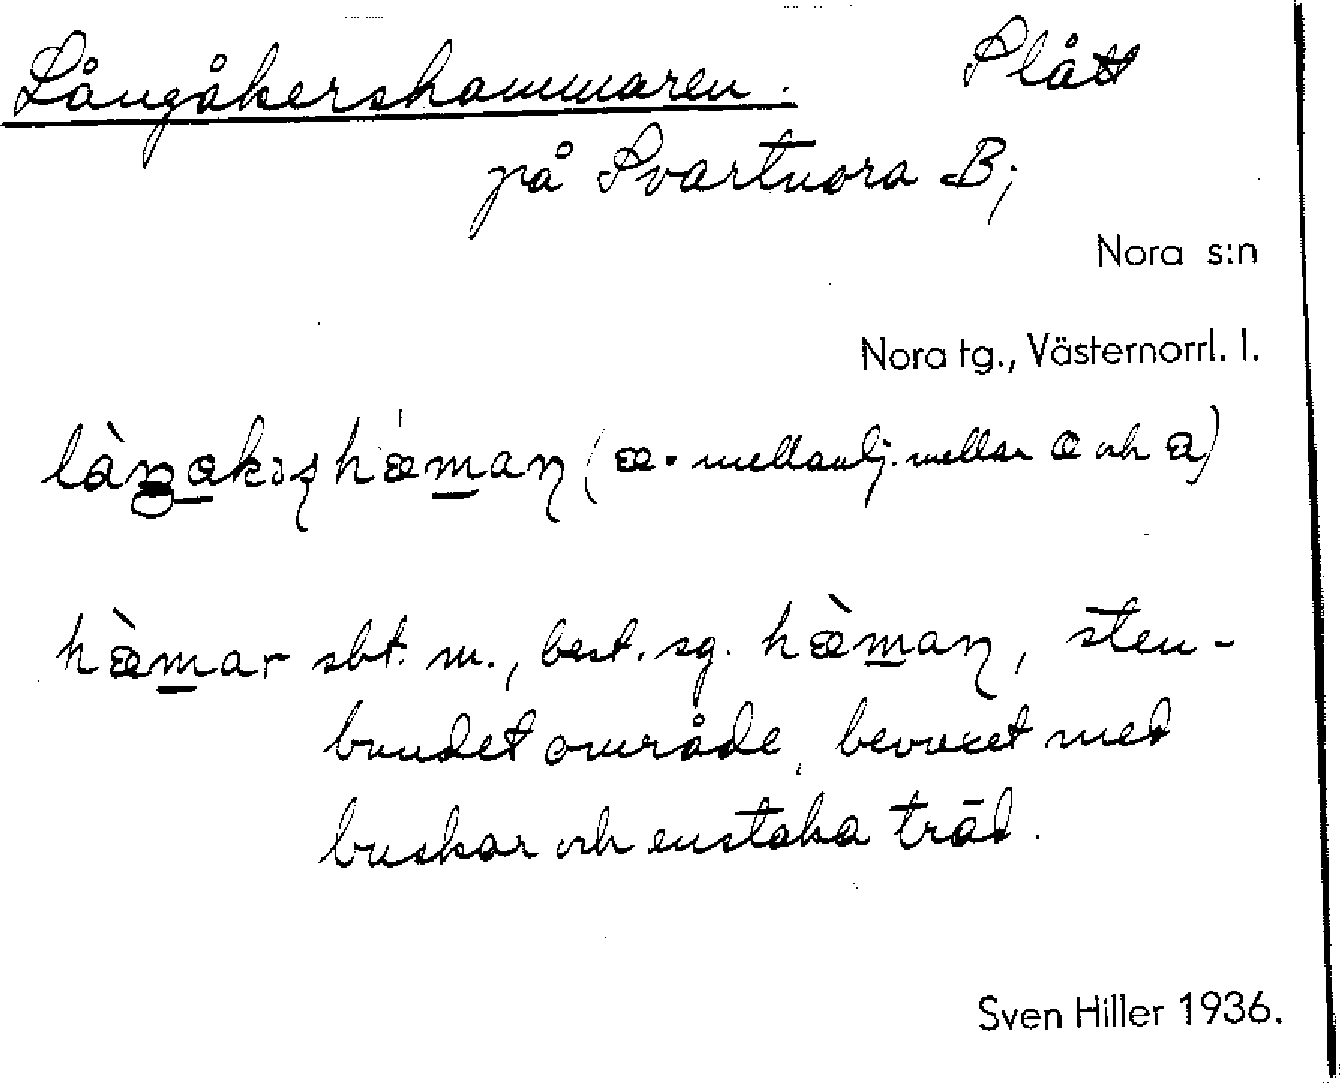 Långåkershammaren. Slått
på Svartnora B;
Nora s:n
Nora tg., Västernorrl. l.
(æ = mellanlj. mellan a och a)
hæ̀mar sbt. m., best. sg. hæ̀maɳ, sten-
bundet område, bevuxet med
buskar och enstaka träd.
Sven Hiller 1936.